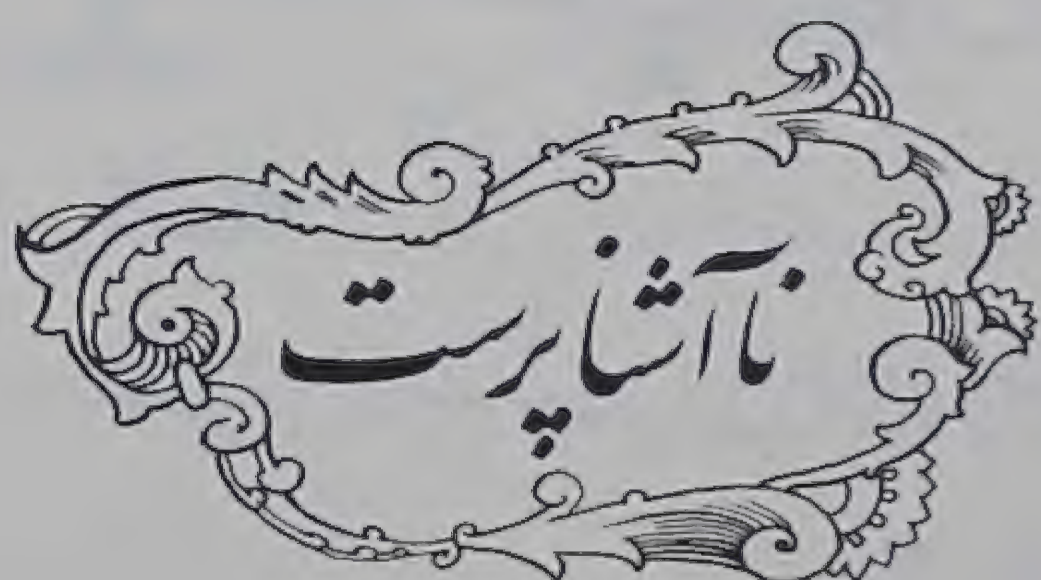 ناآشنا پرست